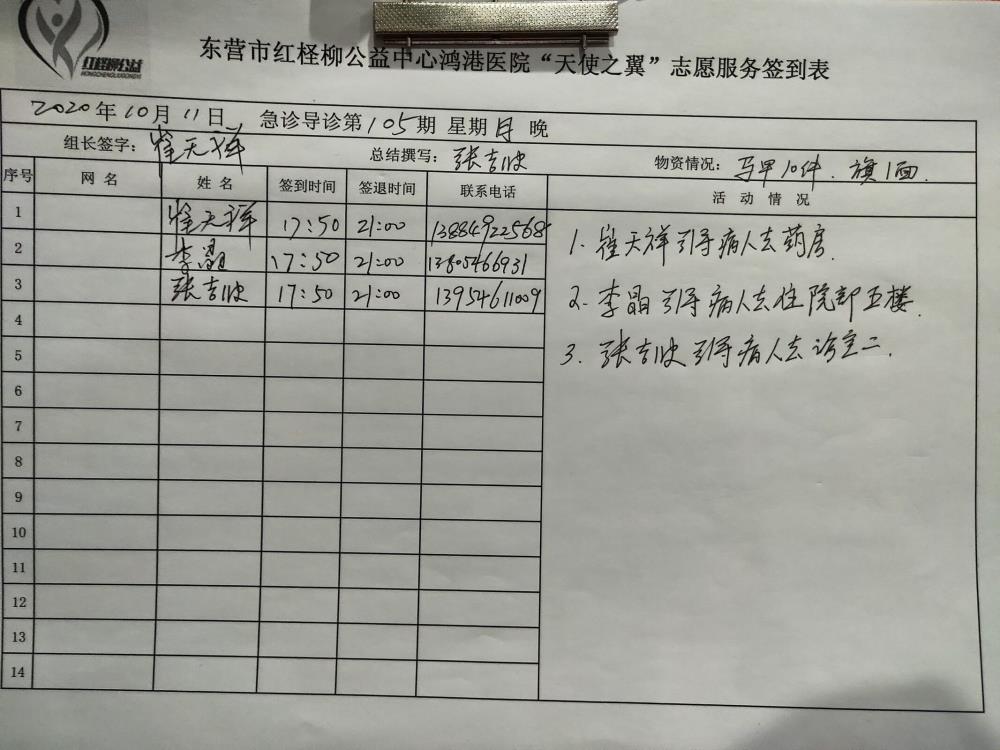 红柽柳公益
HONGCHENGLIUGONGYI
东营市红柽柳公益中心鸿港医院“天使之翼”志愿服务签到表
2020年10月11日 急诊导诊第105期 星期日 晚
组长签字：崔天祥 总结撰写：张吉忠 物资情况：马甲10件．旗1面．
序号 网名 姓名 签到时间 签退时间 联系电话 活动情况
1 崔天祥 17:50 21:00 13884922568
2 李晶 17:50 21:00 13805466931
3 张吉忠 17:50 21:00 13954611009
4
5
6
7
8
9
10
11
12
13
14
1．崔天祥引导病人去药房．
2．李晶引导病人去住院部五楼．
3．张吉忠引导病人去诊室二．